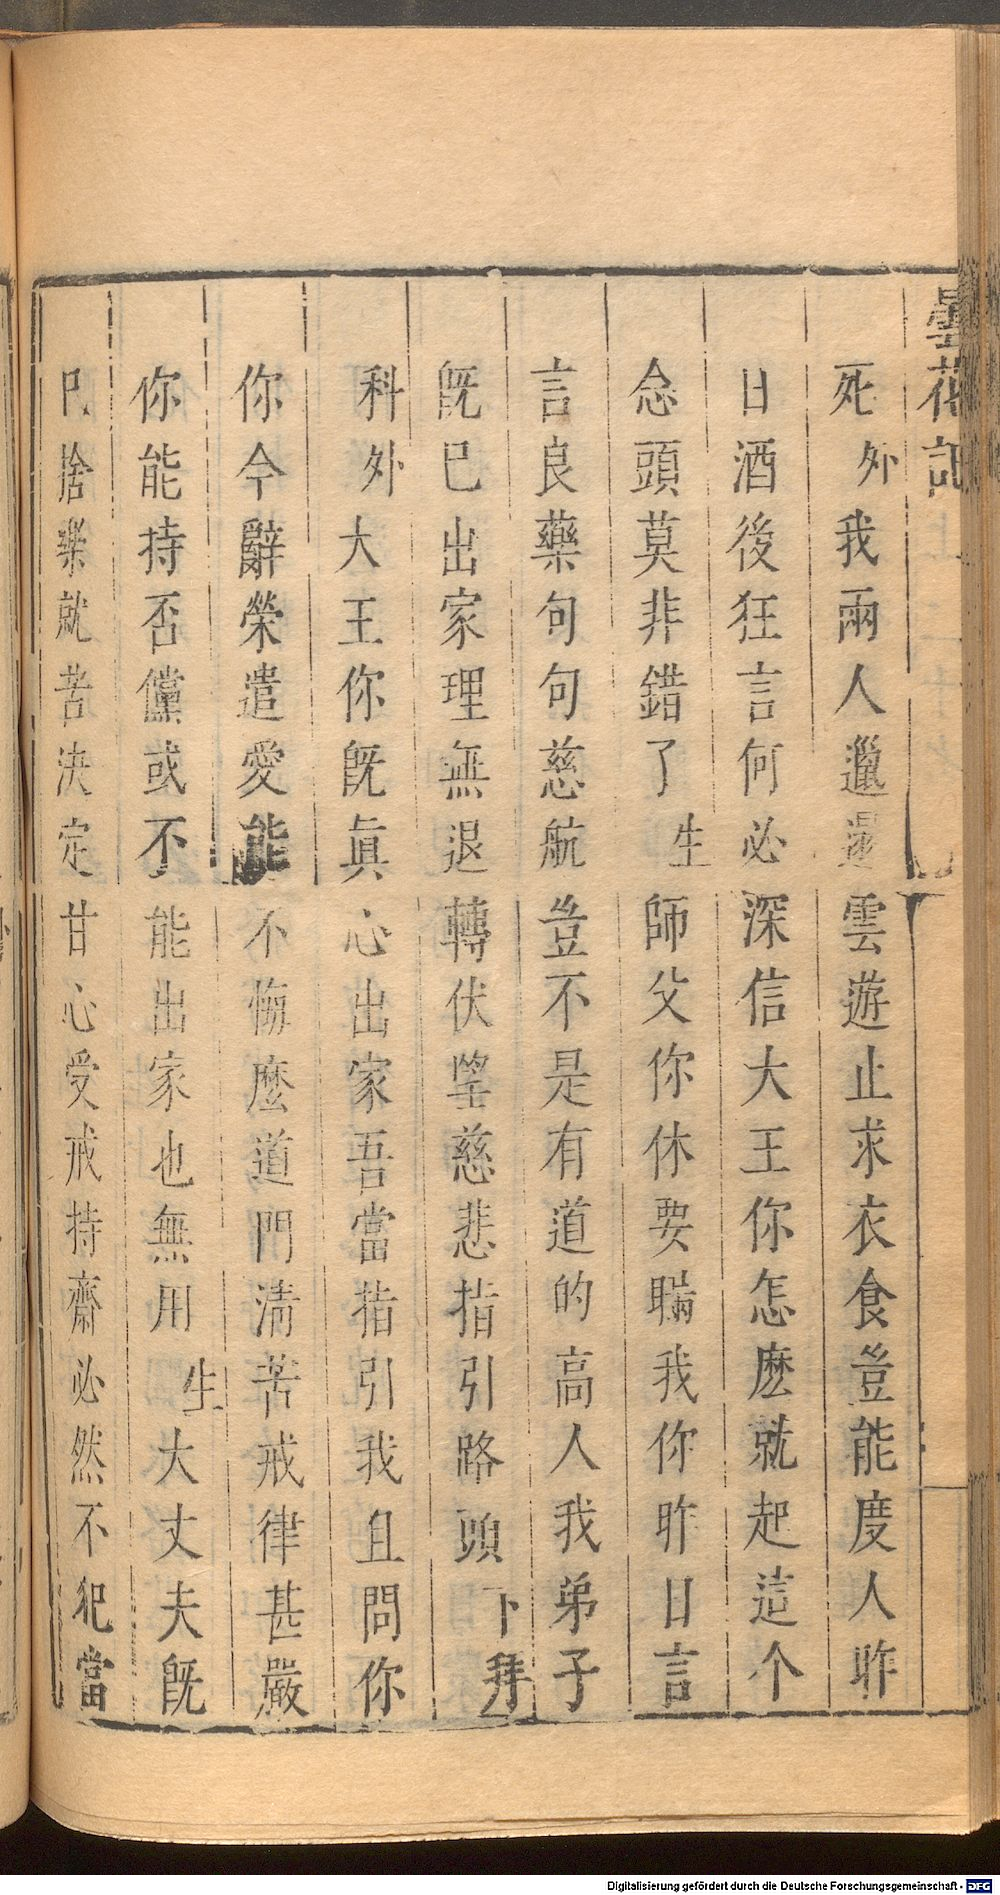 曇花記
死外我兩人邋遢雲遊止求衣食豈能度人昨
日酒後狂言何必深信大王你怎麽就起這个
念頭莫非錯了生師父你休要瞞我你昨日言
言良藥句句慈航豈不是有道的高人我弟子
既已出家理無退轉伏望慈悲指引路頭下拜
科外大王你既眞心出家吾當指引我且問你
你今辭榮遣愛能不悔麽道門清苦戒律甚嚴
你能持否儻或不能出家也無用生大丈夫既
已捨樂就苦決定甘心受戒持齋必然不犯當
Digitalisierung gefördert durch die Deutsche Forschungsgemeinschaft - DFG